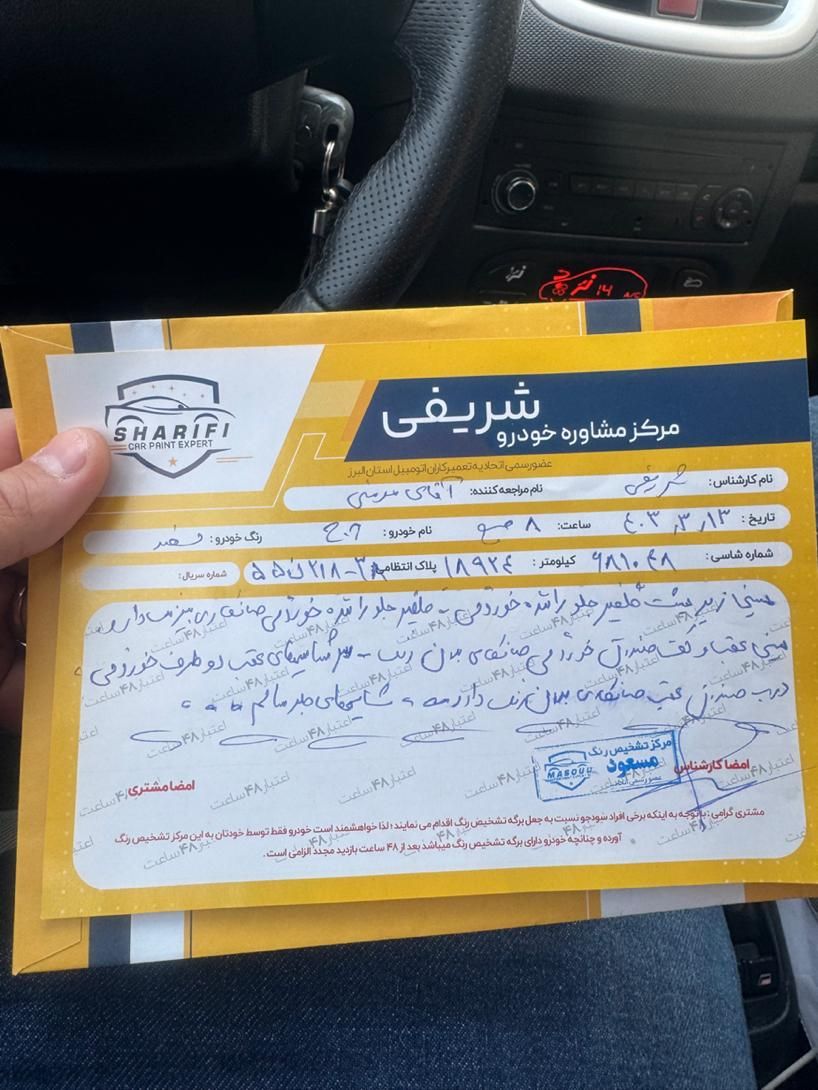 SHARIFI
CAR PAINT EXPERT
شریفی
مرکز مشاوره خودرو
عضو رسمی اتحادیه تعمیرکاران اتومبیل استان البرز
نام کارشناس: شریفی نام مراجعه کننده: آقای
تاریخ: ۴۰۳٫۳٫۱۳ ساعت: ۸ صبح نام خودرو: رنگ خودرو: سفید
شماره شاسی: ۶۸۱۰۴۸ کیلومتر: ۱۸۹۲۴ پلاک انتظامی: شماره سریال:
سینی زیر گلگیر جلو راننده خوردگی - گلگیر جلو راننده خوردگی صافکاری
سینی عقب و کف صندوق خوردگی صافکاری بدون رنگ - سر شاسیهای عقب دو طرف خوردگی
درب صندوق عقب صافکاری بدون رنگ دارد شاسیهای جلو سالم
مرکز تشخیص رنگ
مسعود
MASOUD
امضا کارشناس
امضا مشتری
اعتبار ۴۸ ساعت
مشتری گرامی: باتوجه به اینکه برخی افراد سودجو نسبت به جعل برگه تشخیص رنگ اقدام می نمایند؛ لذا خواهشمند است خودرو فقط توسط خودتان به این مرکز تشخیص رنگ
آورده و چنانچه خودرو دارای برگه تشخیص رنگ میباشد بعد از ۴۸ ساعت بازدید مجدد الزامی است.